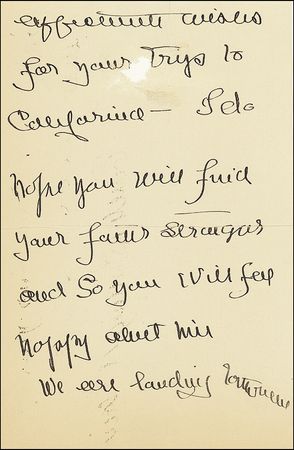 affectionate wishes
for your tryp to
California — I do
hope you will find
your father stronger
and so you will feel
happy about him
We are landing tomorrow